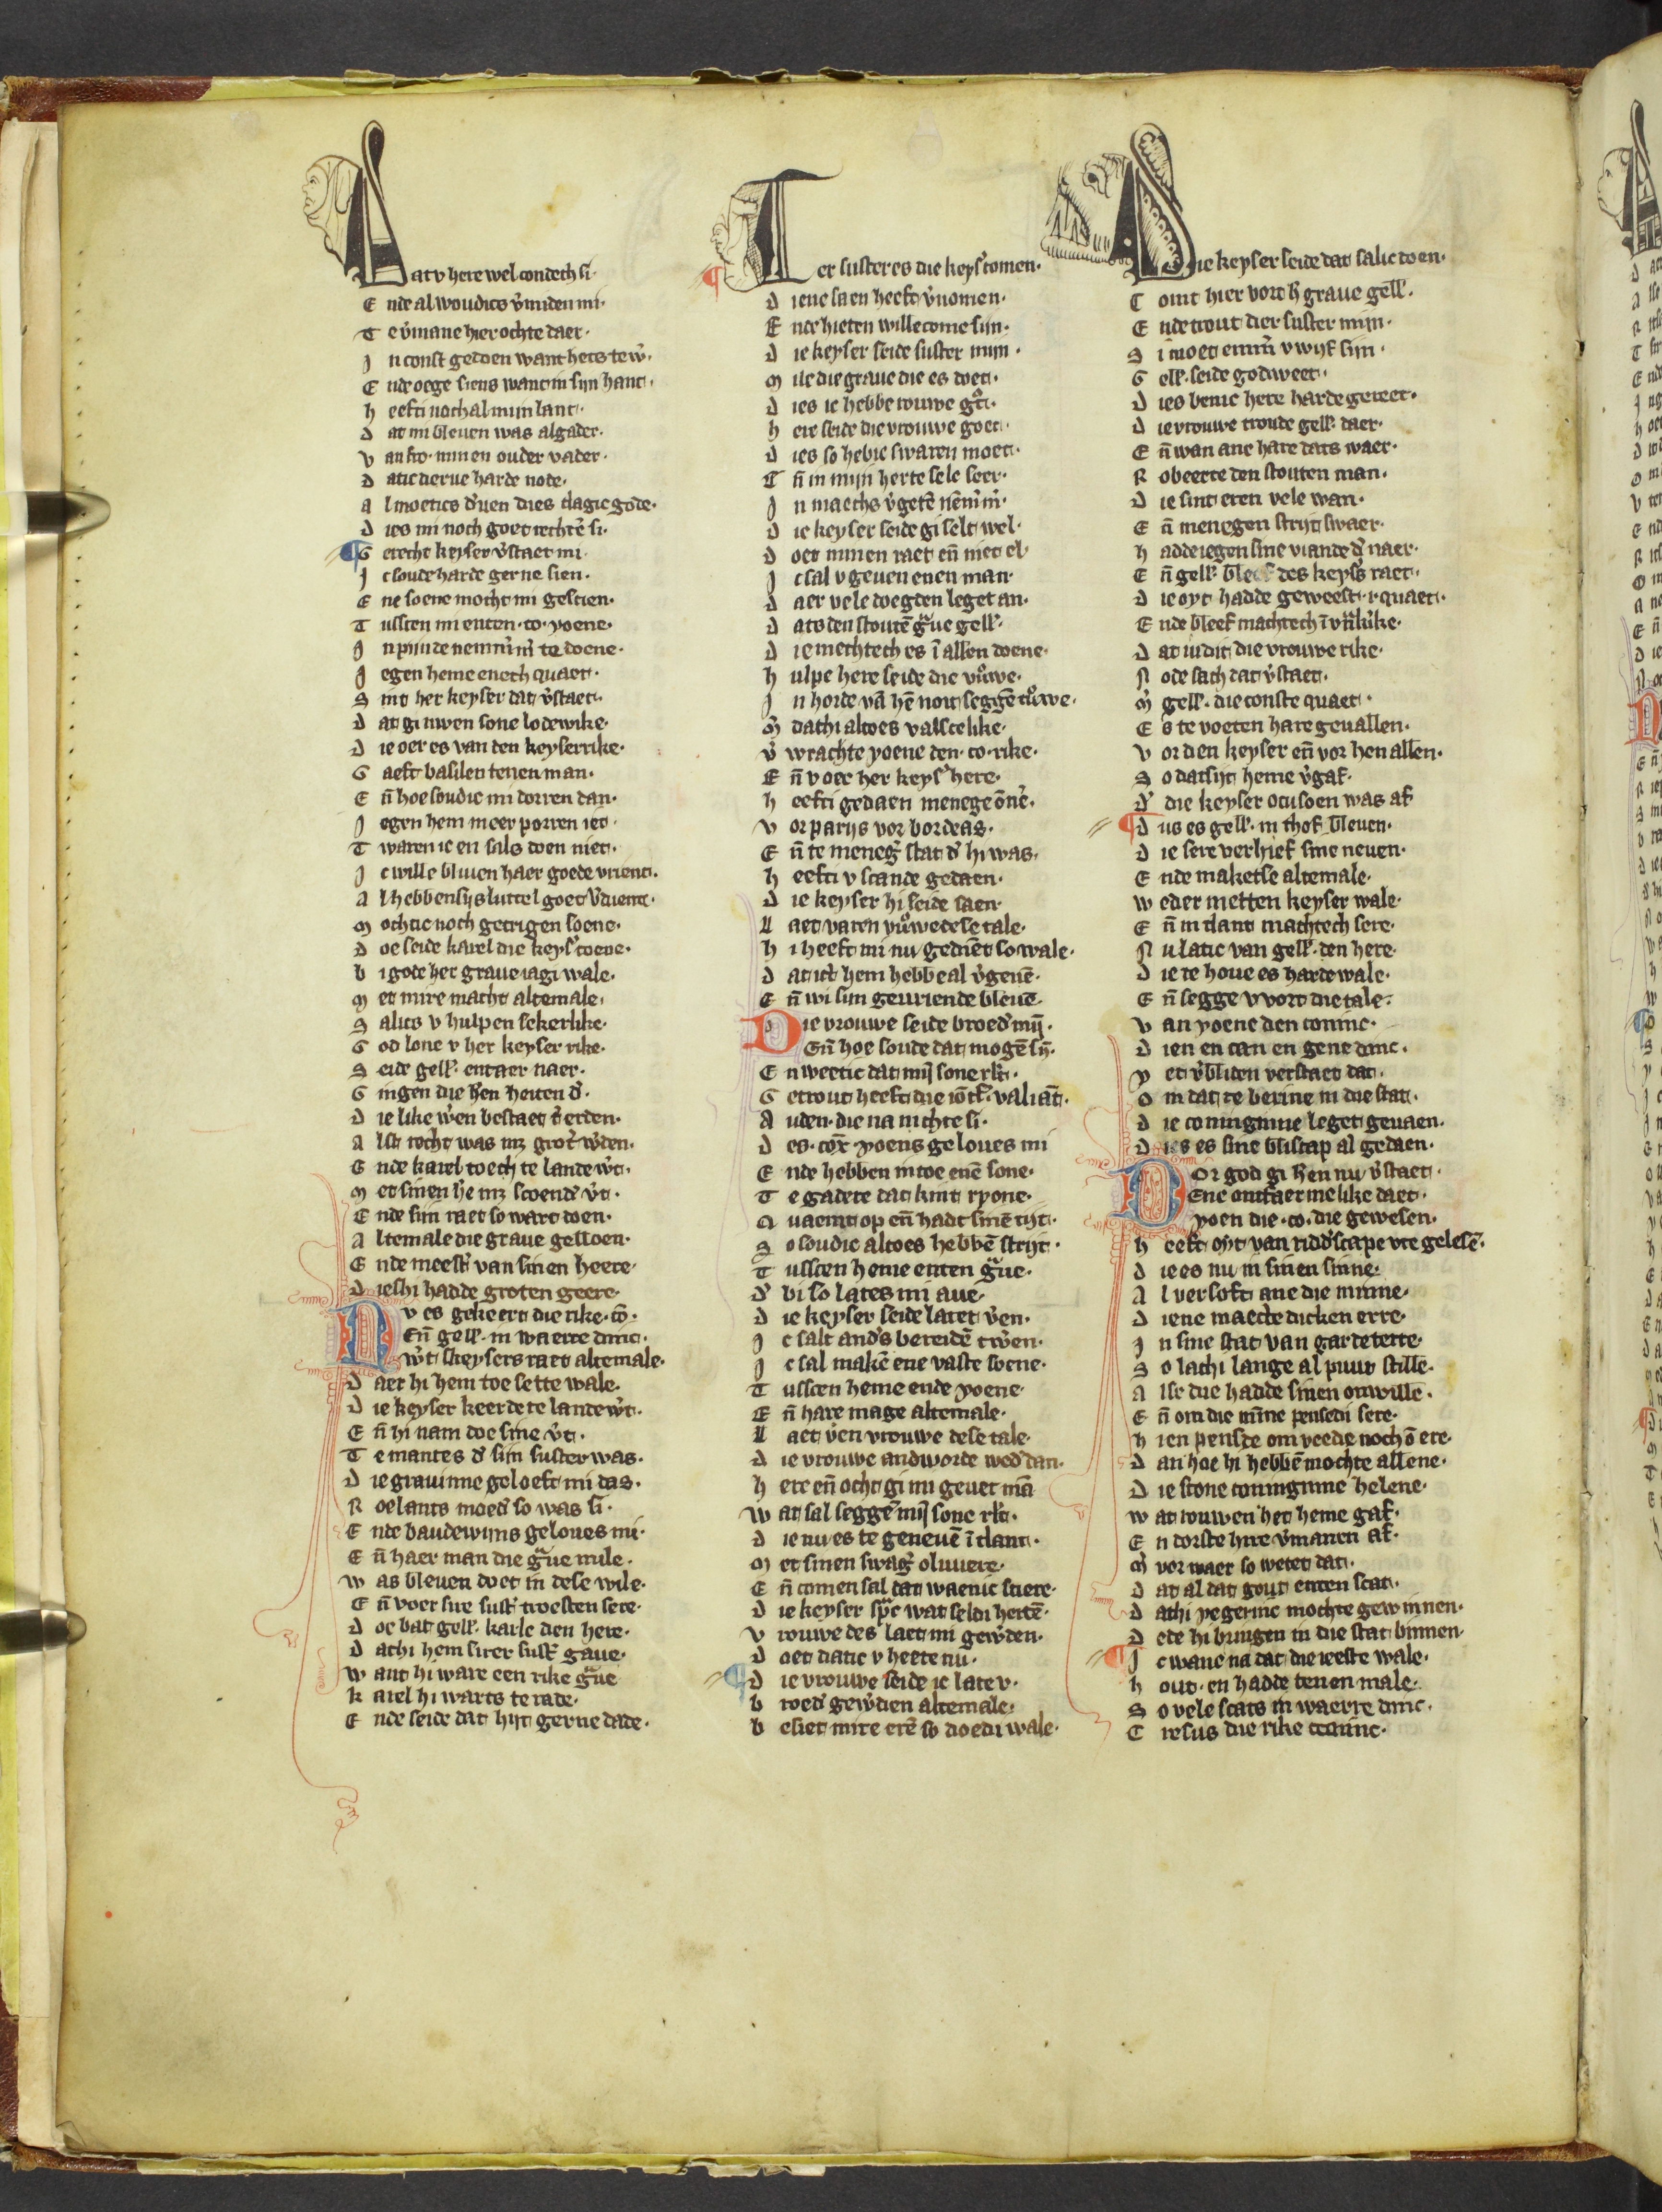 Dat v here wel condech si·
E nde al woudics v̓minden mi·
T e v̓mane hier ochte daer·
J n const gedoen want hets te w̓·
E nde oege siens want in sijn hant·
h eefti noch al mijn lant·
d at mi bleuen was algader·
v an fro· minen ouder vader·
d at ic derue harde node·
a l moetics d̓uen dies clagic gode·
d ies mi noch goet rechtē si·
G erecht keyser v̓staet mi·
J c soude harde gerne sien·
E ne soene mocht mi gescien·
T usscen mi enten ·co· yoene·
J n pijnde nemm̓m̓ te doene·
J egen heme enech quaet·
S int her keyser dat v̓staet·
D at gi uwen sone lodewike·
D ie oer es van den keyserrike·
G aeft basilen tenen man·
E n̄ hoe soudic mi dorren dan·
J egen hem meer porren iet·
T waren ic en sals doen niet·
J c wille bliuen haer goede vrient·
a l hebbensijs luttel goet v̓dient·
m ochtic noch gecrigen soene·
d oe seide karel die keys̓ coene·
b i gode her graue iagi wale·
m et mire macht altemale·
S alics v hulpen sekerlike·
G od lone v her keyser rike·
S eide gell̓· entaer naer·
G ingen die h̄en heiten d̓·
D ie like w̓en bestaet t̓ erden·
a lst recht was mz grot̓ w̓den·
E nde karel toech te lande w̓t·
m et sinen h̄e mz scoend̓ v̓t·
E nde sijn raet so wart doen·
a ltemale die graue gelloen·
E nde meest̓ van sinen heere·
D ieshi hadde groten geere·
N v es gekeert die rike ·co̅·
En̄ gell̓· in waerre dinc·
W̓t skeysers raet altemale·
D aer hi hem toe sette wale·
D ie keyser keerde te lande w̓t·
E n̄ hi nam doe sine v̓t·
T e mantes d̓ sijn suster was·
D ie grauinne geloeft mi das·
R oelants moed̓ so was si·
E nde baudewijns geloues mi·
E n̄ haer man die gͣue mile·
w as bleuen doet in dese wile·
E n̄ voer sire sust̓ troesten sere·
D oe bat gell̓· karle den here·
D at hi hem sirer sust̓ gaue·
w ant hi ware een rike gͣue
k arel hi warts te rade·
E nde seide dat hijt gerne dade·
Ter suster es die keys̓ comen·
D iene saen heeft v̓nomen·
E nde hieten willecome sijn·
D ie keyser seide suster mijn·
m ile die graue die es doet·
D ies ic hebbe rouwe gͦt·
h ere seide die vrouwe goet·
D ies so hebic swaren moet·
E n̄ in mijn herte sele seer·
J n maechs v̓getē nēm̓m̓·
D ie keyser seide gi selt wel·
D oet minen raet en̄ niet el·
J c sal v geuen enen man·
D aer vele doegden leget an·
D ats den stoutē gͣue gell̓·
D ie mechtech es ī allen doene·
h ulpe here seide die vrͦuwe·
J n horde vā hē noit seggē trͦuwe·
m̓ dat hi altoes valscelike·
v̓ wrachte yoene den ·co· rike·
E n̄ v oec her keys̓ here·
h eefti gedaen menege o̅ne̅·
v or parijs vor bordeas·
E n̄ te meneg̓ stat d̓ hi was·
h eefti v scande gedaen·
D ie keyser hi seide saen·
L aet varen vrͦuwe dese tale·
h i heeft mi nu gedient so wale·
D at ict hem hebbe al v̓geuē·
E n̄ wi sijn geuriende bleuē·
Die vrouwe seide broed̓ mij̄·
En̄ hoe soude dat mogē sij̄·
E n weetic dat mij̄ sone rit̓·
G etrout heeft die io̅cf· valiāt·
A uden· die na nichte si·
D es ·co̅x· yoens geloues mi
E nde hebben mtoe enē sone·
T e gadere dat kint ryone·
Q uaemt op en̄ hadt sinē tijt·
S o soudic altoes hebbē strijt·
T usscen heme enten gͣue·
D̓ bi so lates mi aue·
D ie keyser seide latet v̓en·
J c salt and̓s bereidē tw̓en·
J c sal makē ene vaste soene·
T usscen heme ende yoene·
E n̄ hare mage altemale·
L aet v̓en vrouwe dese tale·
D ie vrouwe andworde wed̓ dan·
h ere en̄ ocht gi mi geuet mā
w at sal seggē mij̄ sone rit̓·
D ie nu es te geneuē ī tlant·
m et sinen swag̓ oliuiere·
E n̄ comen sal dat waenic sciere·
D ie keyser spͣc wat seldi hetē·
v rouwe des laet mi gew̓den·
D oet datic v heete nu·
D ie vrouwe seide ic late v·
b roed̓ gew̓dien altemale·
b esiet mire erē so doedi wale·
Die keyser seide dat salic doen·
C omt hier vort h̄ graue gell̓·
E nde trout dier suster mijn·
S i moet emm̄ v wijf sijn·
G ell̓· seide godweet·
D ies benic here harde gereet·
D ie vrouwe troude gell̓· daer·
E n̄ wan ane hare dats waer·
R obeerte den stouten man·
D ie sint eren vele wan·
E n̄ menegen strijt swaer·
h adde iegen sine viande d̓ naer·
E n̄ gell̓ bleef des keys̓s raet·
D ie oyt hadde geweest ·i· quaet·
E nde bleef machtech ī vrͣkrike·
D at iudit die vrouwe rike·
N ode sach dat v̓staet·
m̓ gell̓· die conste quaet·
E s te voeten hare geuallen·
v or den keyser en̄ vor hen allen·
S o datsijt heme v̓gaf·
D̓ die keyser ocusoen was af
D us es gell̓· in thof bleuen·
D ie sere verhief sine neuen·
E nde maketse altemale·
w eder metten keyser wale·
E n̄ in tlant machtech sere·
N u latic van gell̓· den here·
D ie te houe es harde wale·
E n̄ segge v vort die tale·
v an yoene den coninc·
D ien en can en gene dinc·
y et v̓bliden verstaet dat·
O m dat te berine in die stat·
D ie coninginne leget geuaen·
D ies es sine bliscap al gedaen·
Dor god gi h̄en nu v̓staet·
Ene ontfaermelike daet·
yoen die ·co· die gewesen·
h eeft oyt van ridd̓scape vte gelesē·
D ie es nu in sinen sinne·
A l versoft ane die minne·
D iene maecte dicken erre·
J n sine stat van gardeterre·
S o lach i lange al puur stille·
A lse die hadde sinen onwille·
E n̄ om die mīne pensedi sere·
h ien pensde om veede noch o̅ ere·
D an hoe hi hebbē mochte allene·
D ie scone coninginne helene·
w at rouwen het heme gaf·
E n dorste hire v̓manen af·
m̓ vorwaer so wetet dat·
D at al dat gout enten scat·
D athi yegerinc mochte gewinnen·
D ede hi bringen in die stat binnen·
J c wane na dat die ieeste wale·
h out· en hadde tenen male·
S o vele scats in waerre dinc·
C resus die rike coninc·